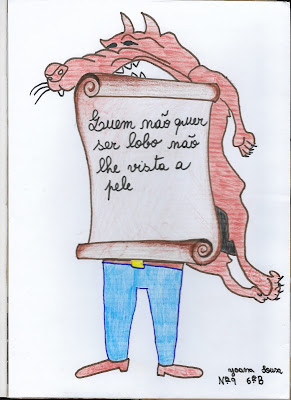 Quem não quer
ser lobo não
lhe vista a
pele
Joana Sousa
Nº9 6ºB